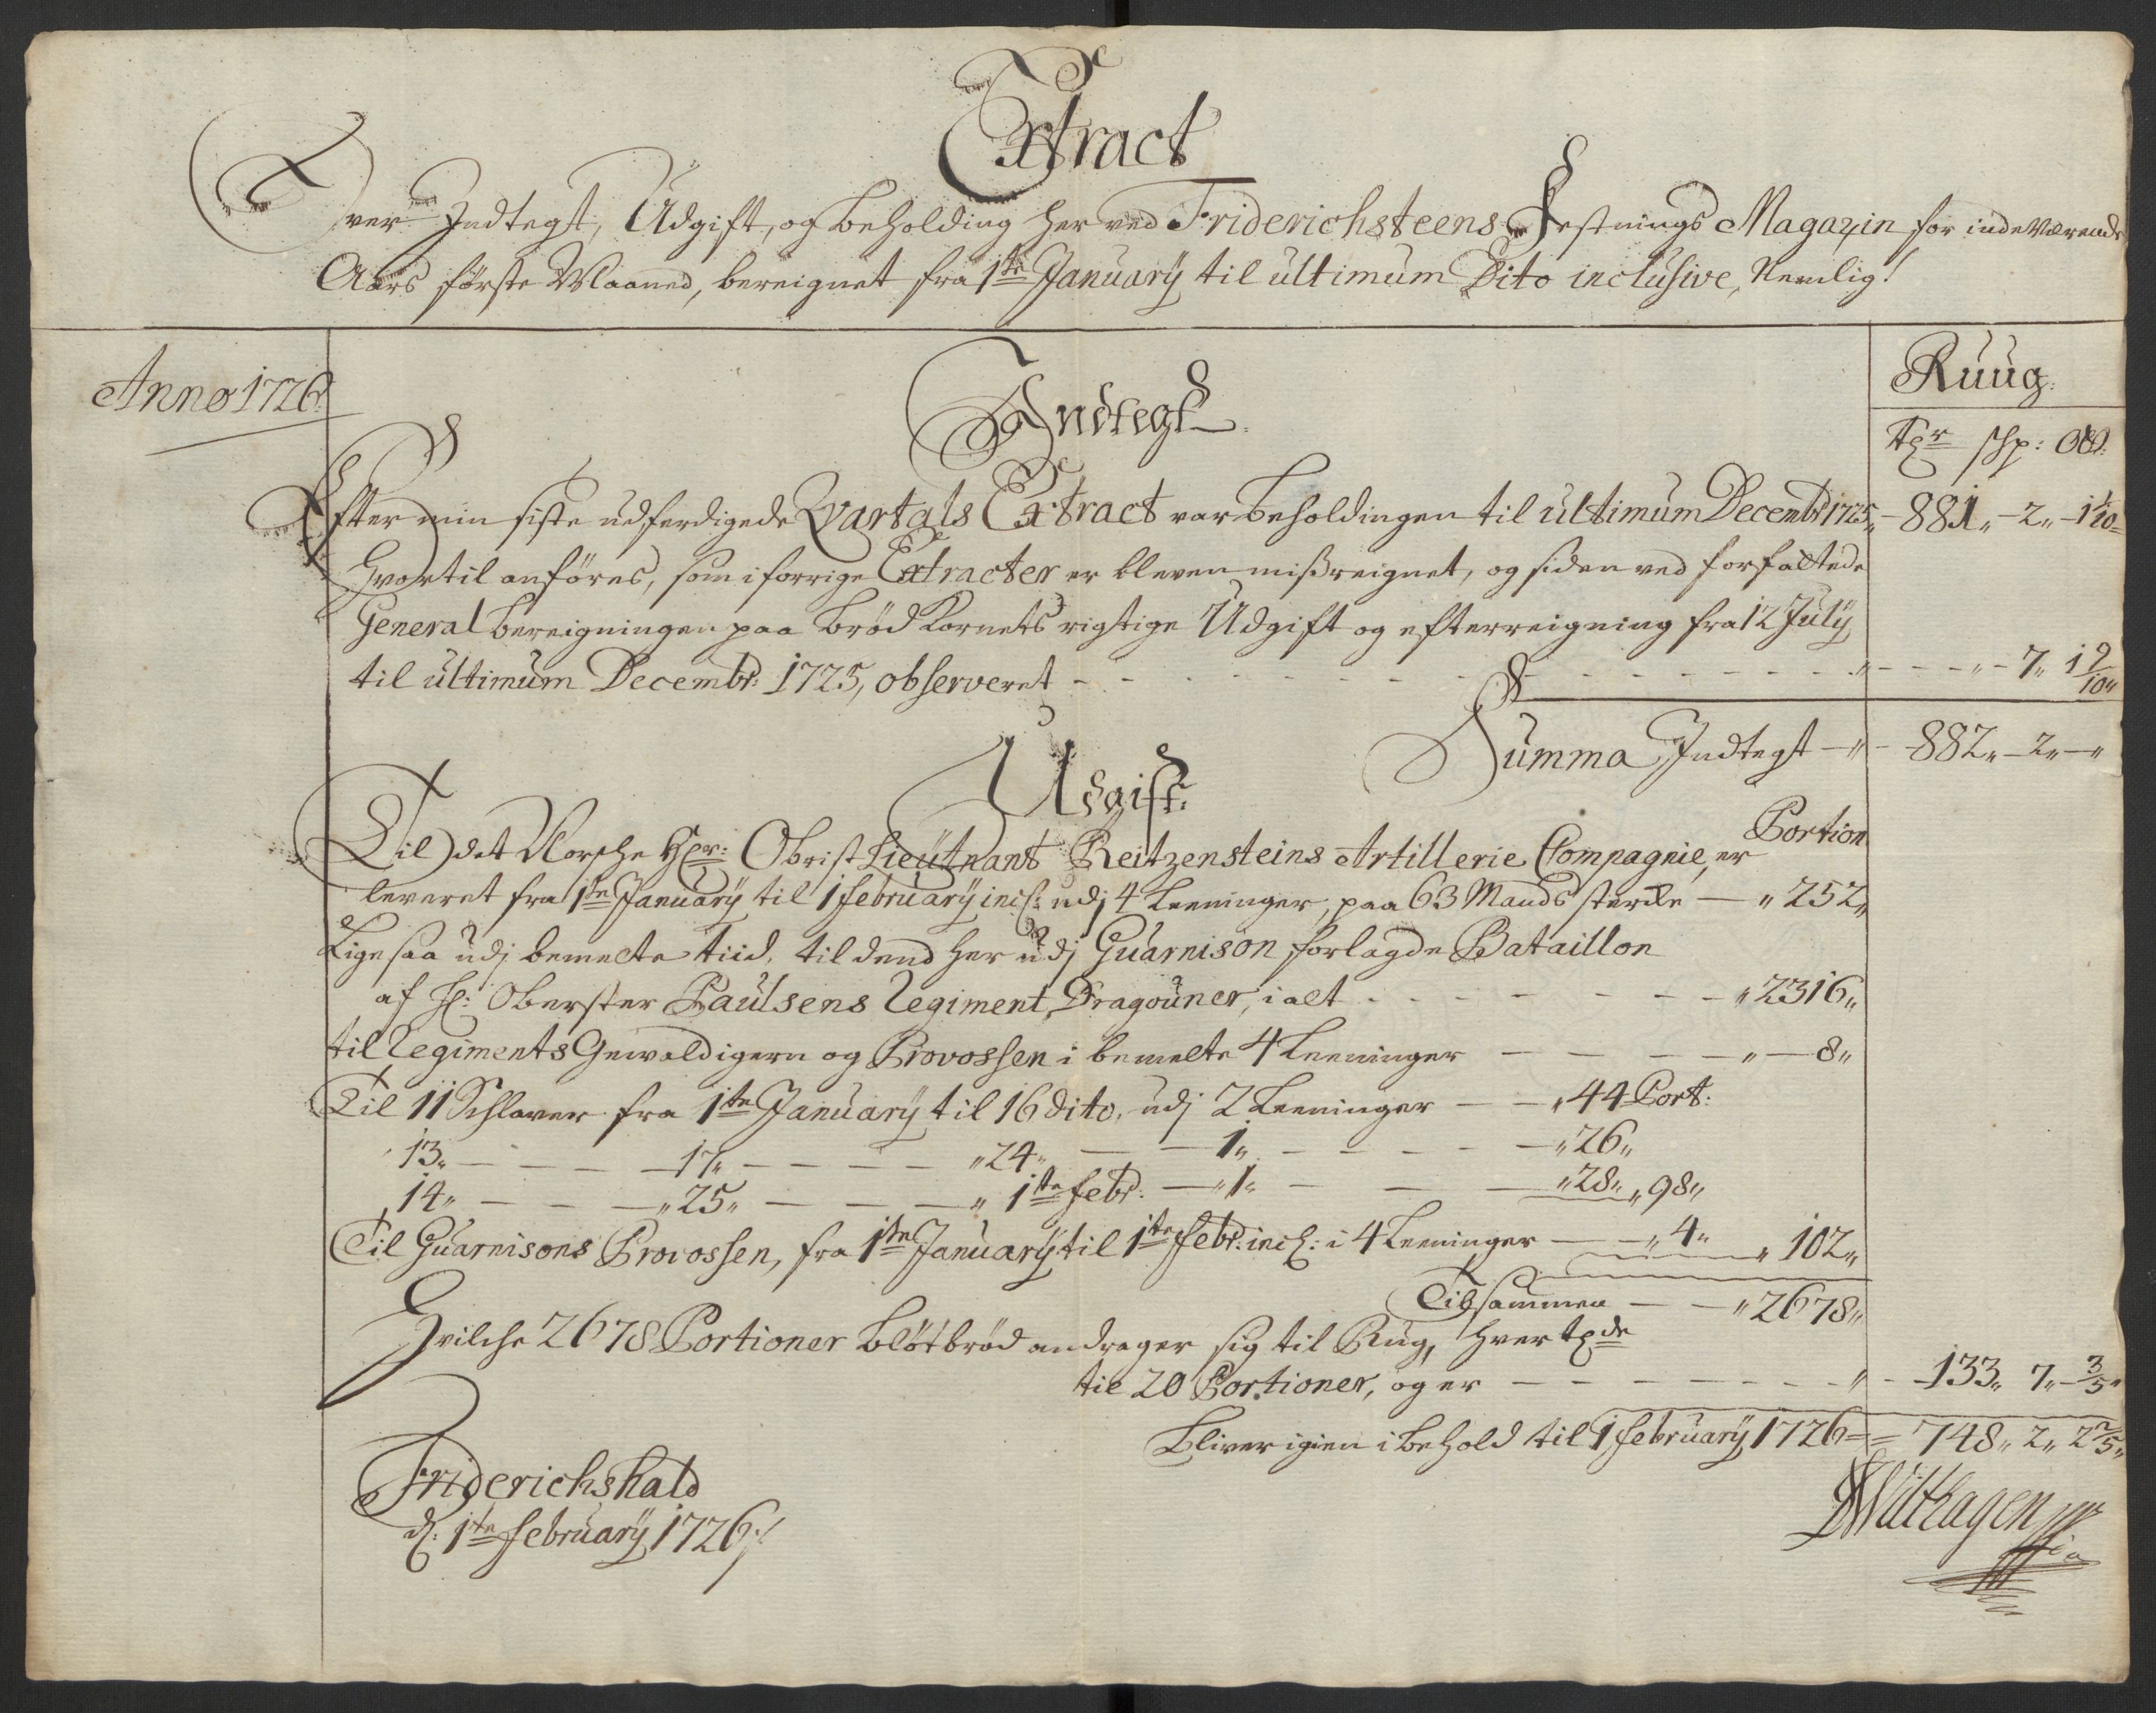 Extract
Over Indtegt, Udgift, og beholding her ved Friderichsteens Festnings Magazin for indeværende
Aars første Maaned, bereignet fra 1te January til ultimum Dito inclusive, Nemlig!
Anno 1726.
Ruug.
Indtegt.
Tdr schp: Ott:
Efter min siste udferdigede Qvartals Extract var beholdingen til ultimum Decembr 1725 „ 881 „ 2 „ 1 1/10
Hvortil anføres, som i forrige Extracter er bleven misreignet, og siden ved forfattede
General bereigningen paa brød Kornets rigtige Udgift og efterreigning fra 12 July
til ultimum Decembr: 1725, observeret - - - „ - - „ 7 „ 1 9/10 „
Summa Indtegt — „ — 882 „ 2 „ — „
Udgift.
Portion
Til det Norsche Obrist Lieutnant Reitzensteins Artillerie Compagnie, er
leveret fra 1te January til 1 february incl: udj 4 Leeninger, paa 63 Mands sterke — „ 252 „
Lige saa udj bemelte tiid, til dend her udj Guarnison forlagde Bataillon
af Hr: Oberster Paulsens Regiment Dragouner, i alt - - - „ 2316 „
til Regiments Gewaldigern og Provossen i bemelte 4 Leeninger — — — „ — 8 „
Til 11 Schlaver fra 1te January til 16 dito, udj 2 Leeninger — — „ 44 Port:
13 „ — — — 17 „ — — — „ 24 „ — — 1 „ — — — „ 26 „
14 „ — — — „ 25 „ — — — „ 1te febr: — „ 1 „ — — — „ 28 „ „ 98 „
Til Guarnisons Provossen, fra 1te January til 1te febr: incl: i 4 Leeninger — „ 4 „ — „ 102 „
Tilsammen — — „ 2678 „
Hvilche 2678 Portioner bløtbrød andrager sig til Rug, hver tde
til 20 Portioner, og er — — — „ — 133 „ 7 „ 3/5 „
Bliver igien i behold til 1 february 1726 = = 748 „ 2 „ 2 2/5 „
Friderichshald
d: 1te february 1726 ./.